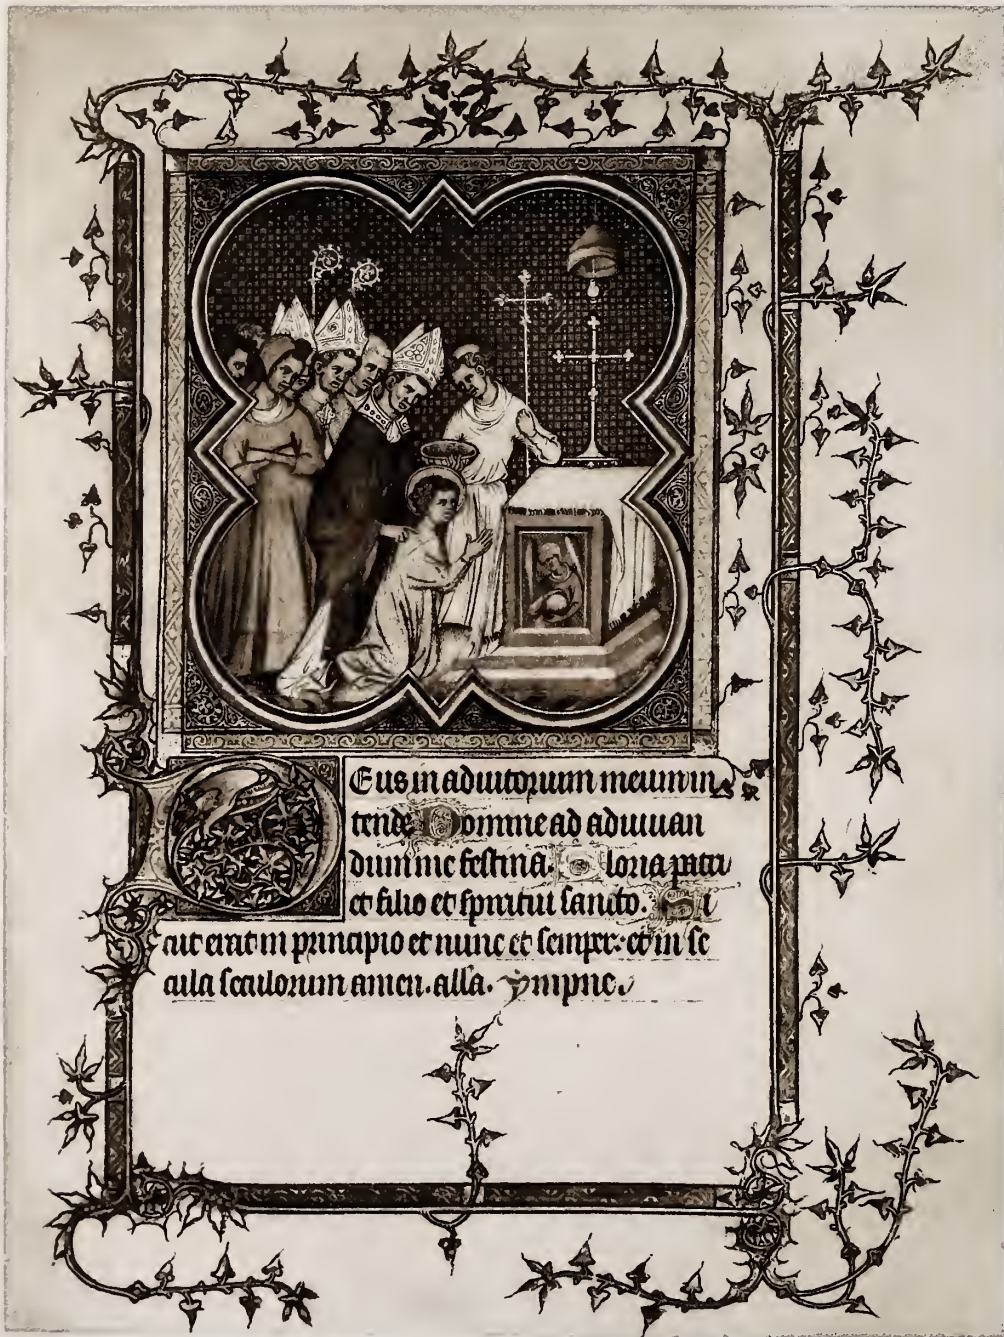 Deus in adiutorium meum in
tende Domine ad adiuuan
dum me festina. Gloria patri
et filio et spiritui sancto. Si
cut erat in principio et nunc et semper: et in se
cula seculorum amen. alla. ympne.